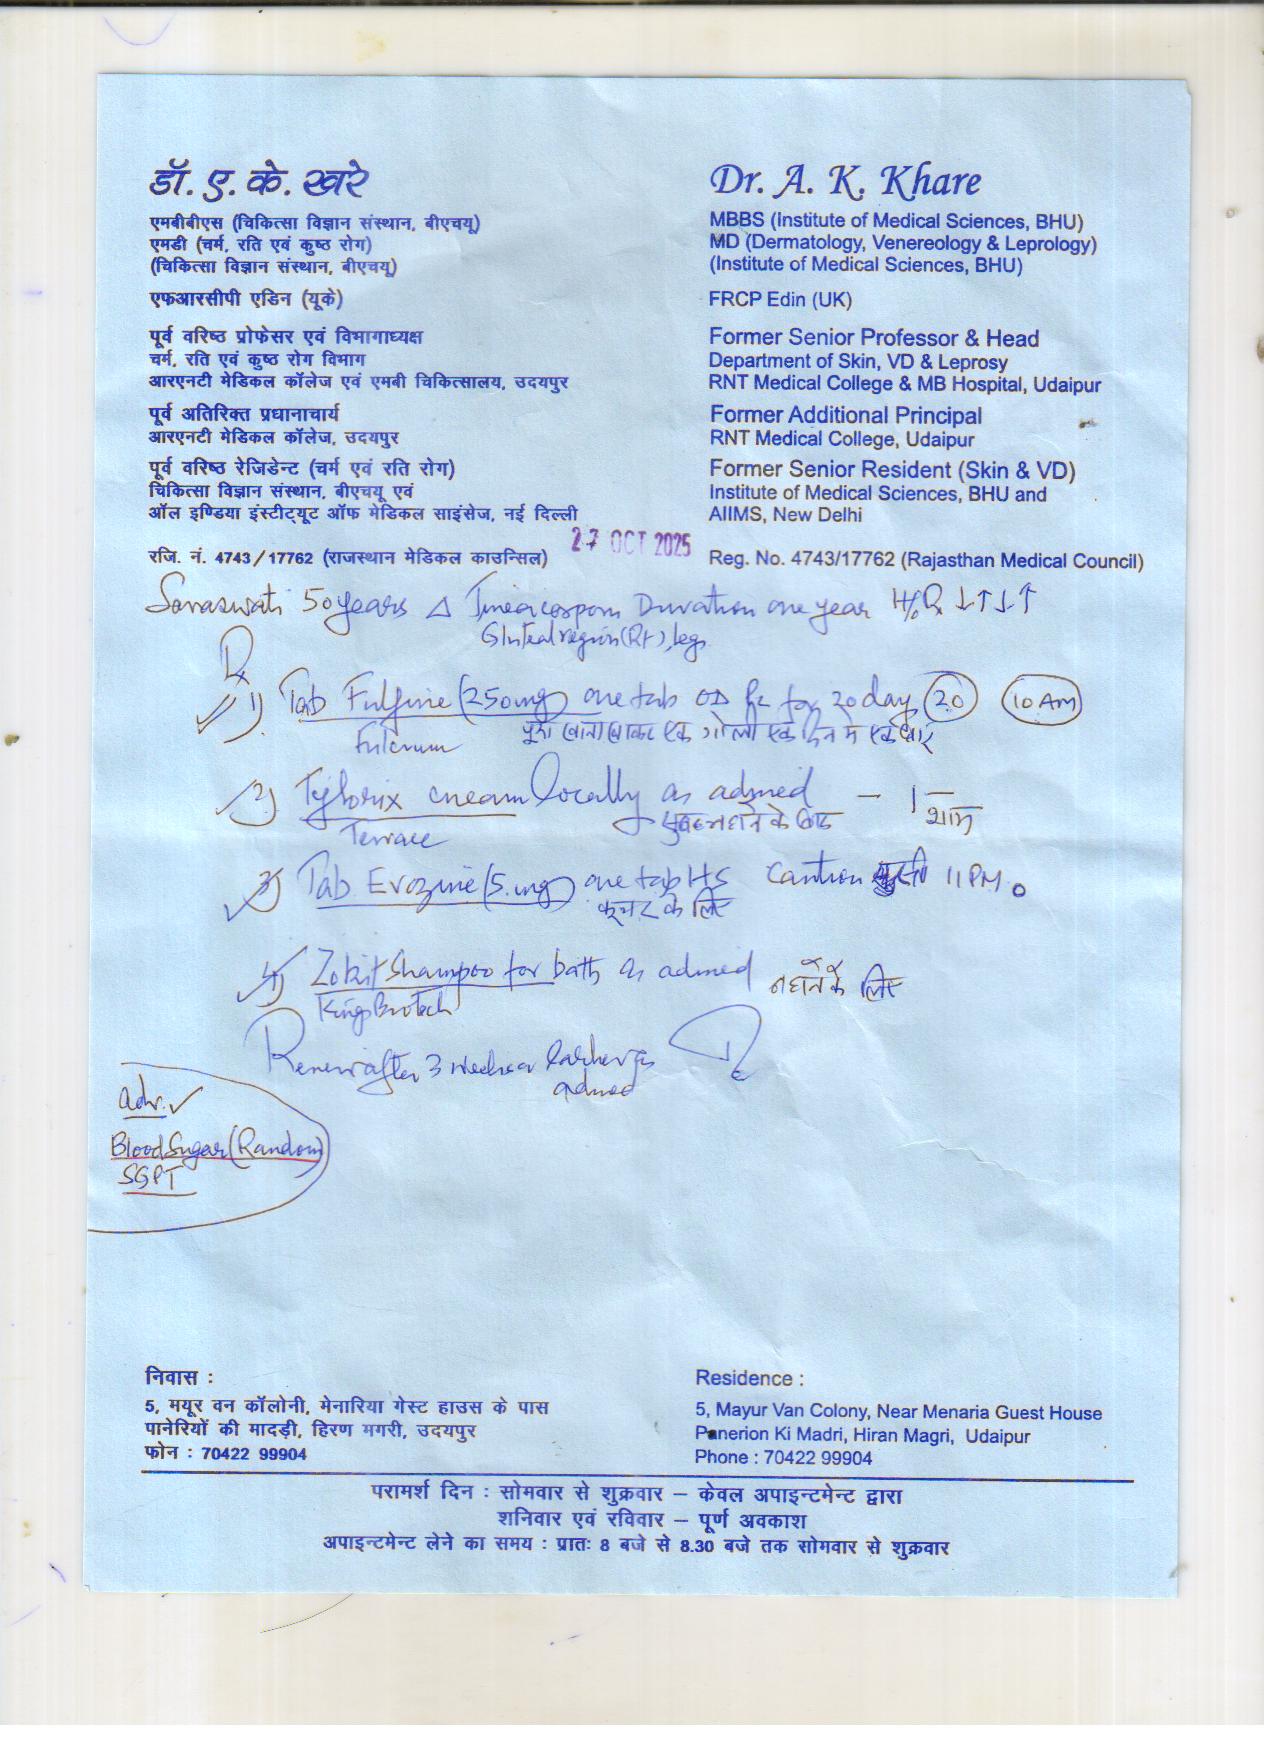 डॉ. ए. के. खरे
एमबीबीएस (चिकित्सा विज्ञान संस्थान, बीएचयू)
एमडी (चर्म, रति एवं कुष्ठ रोग)
(चिकित्सा विज्ञान संस्थान, बीएचयू)
एफआरसीपी एडिन (यूके)
पूर्व वरिष्ठ प्रोफेसर एवं विभागाध्यक्ष
चर्म, रति एवं कुष्ठ रोग विभाग
आरएनटी मेडिकल कॉलेज एवं एमबी चिकित्सालय, उदयपुर
पूर्व अतिरिक्त प्रधानाचार्य
आरएनटी मेडिकल कॉलेज, उदयपुर
पूर्व वरिष्ठ रेजिडेन्ट (चर्म एवं रति रोग)
चिकित्सा विज्ञान संस्थान, बीएचयू एवं
ऑल इण्डिया इंस्टीट्यूट ऑफ मेडिकल साइंसेज, नई दिल्ली
रजि. नं. 4743/17762 (राजस्थान मेडिकल काउन्सिल)
Dr. A. K. Khare
MBBS (Institute of Medical Sciences, BHU)
MD (Dermatology, Venereology & Leprology)
(Institute of Medical Sciences, BHU)
FRCP Edin (UK)
Former Senior Professor & Head
Department of Skin, VD & Leprosy
RNT Medical College & MB Hospital, Udaipur
Former Additional Principal
RNT Medical College, Udaipur
Former Senior Resident (Skin & VD)
Institute of Medical Sciences, BHU and
AIIMS, New Delhi
Reg. No. 4743/17762 (Rajasthan Medical Council)
27 OCT 2025
Saraswati 50 years Δ Duration one year H/o Rx ↓↑↓↑
Gluteal region (Rt), legs
Rx
1) Tab (250mg) one tab OD for 20 days 20 10 AM
Fulcrum
खाना खाकर एक गोली एक दिन में एक बार
2) cream locally as advised — शाम
Terrace
नहाने के बाद
3) Tab (5 mg) one tab HS Caution 11 PM
के लिए
4) Shampoo for bath as advised नहाने के लिए
Review after 3 weeks or as
advised
adv. ✓
Blood Sugar (Random)
SGPT
निवास :
5, मयूर वन कॉलोनी, मेनारिया गेस्ट हाउस के पास
पानेरियों की मादड़ी, हिरण मगरी, उदयपुर
फोन : 70422 99904
Residence :
5, Mayur Van Colony, Near Menaria Guest House
Panerion Ki Madri, Hiran Magri, Udaipur
Phone : 70422 99904
परामर्श दिन : सोमवार से शुक्रवार – केवल अपाइन्टमेन्ट द्वारा
शनिवार एवं रविवार – पूर्ण अवकाश
अपाइन्टमेन्ट लेने का समय : प्रातः 8 बजे से 8.30 बजे तक सोमवार से शुक्रवार